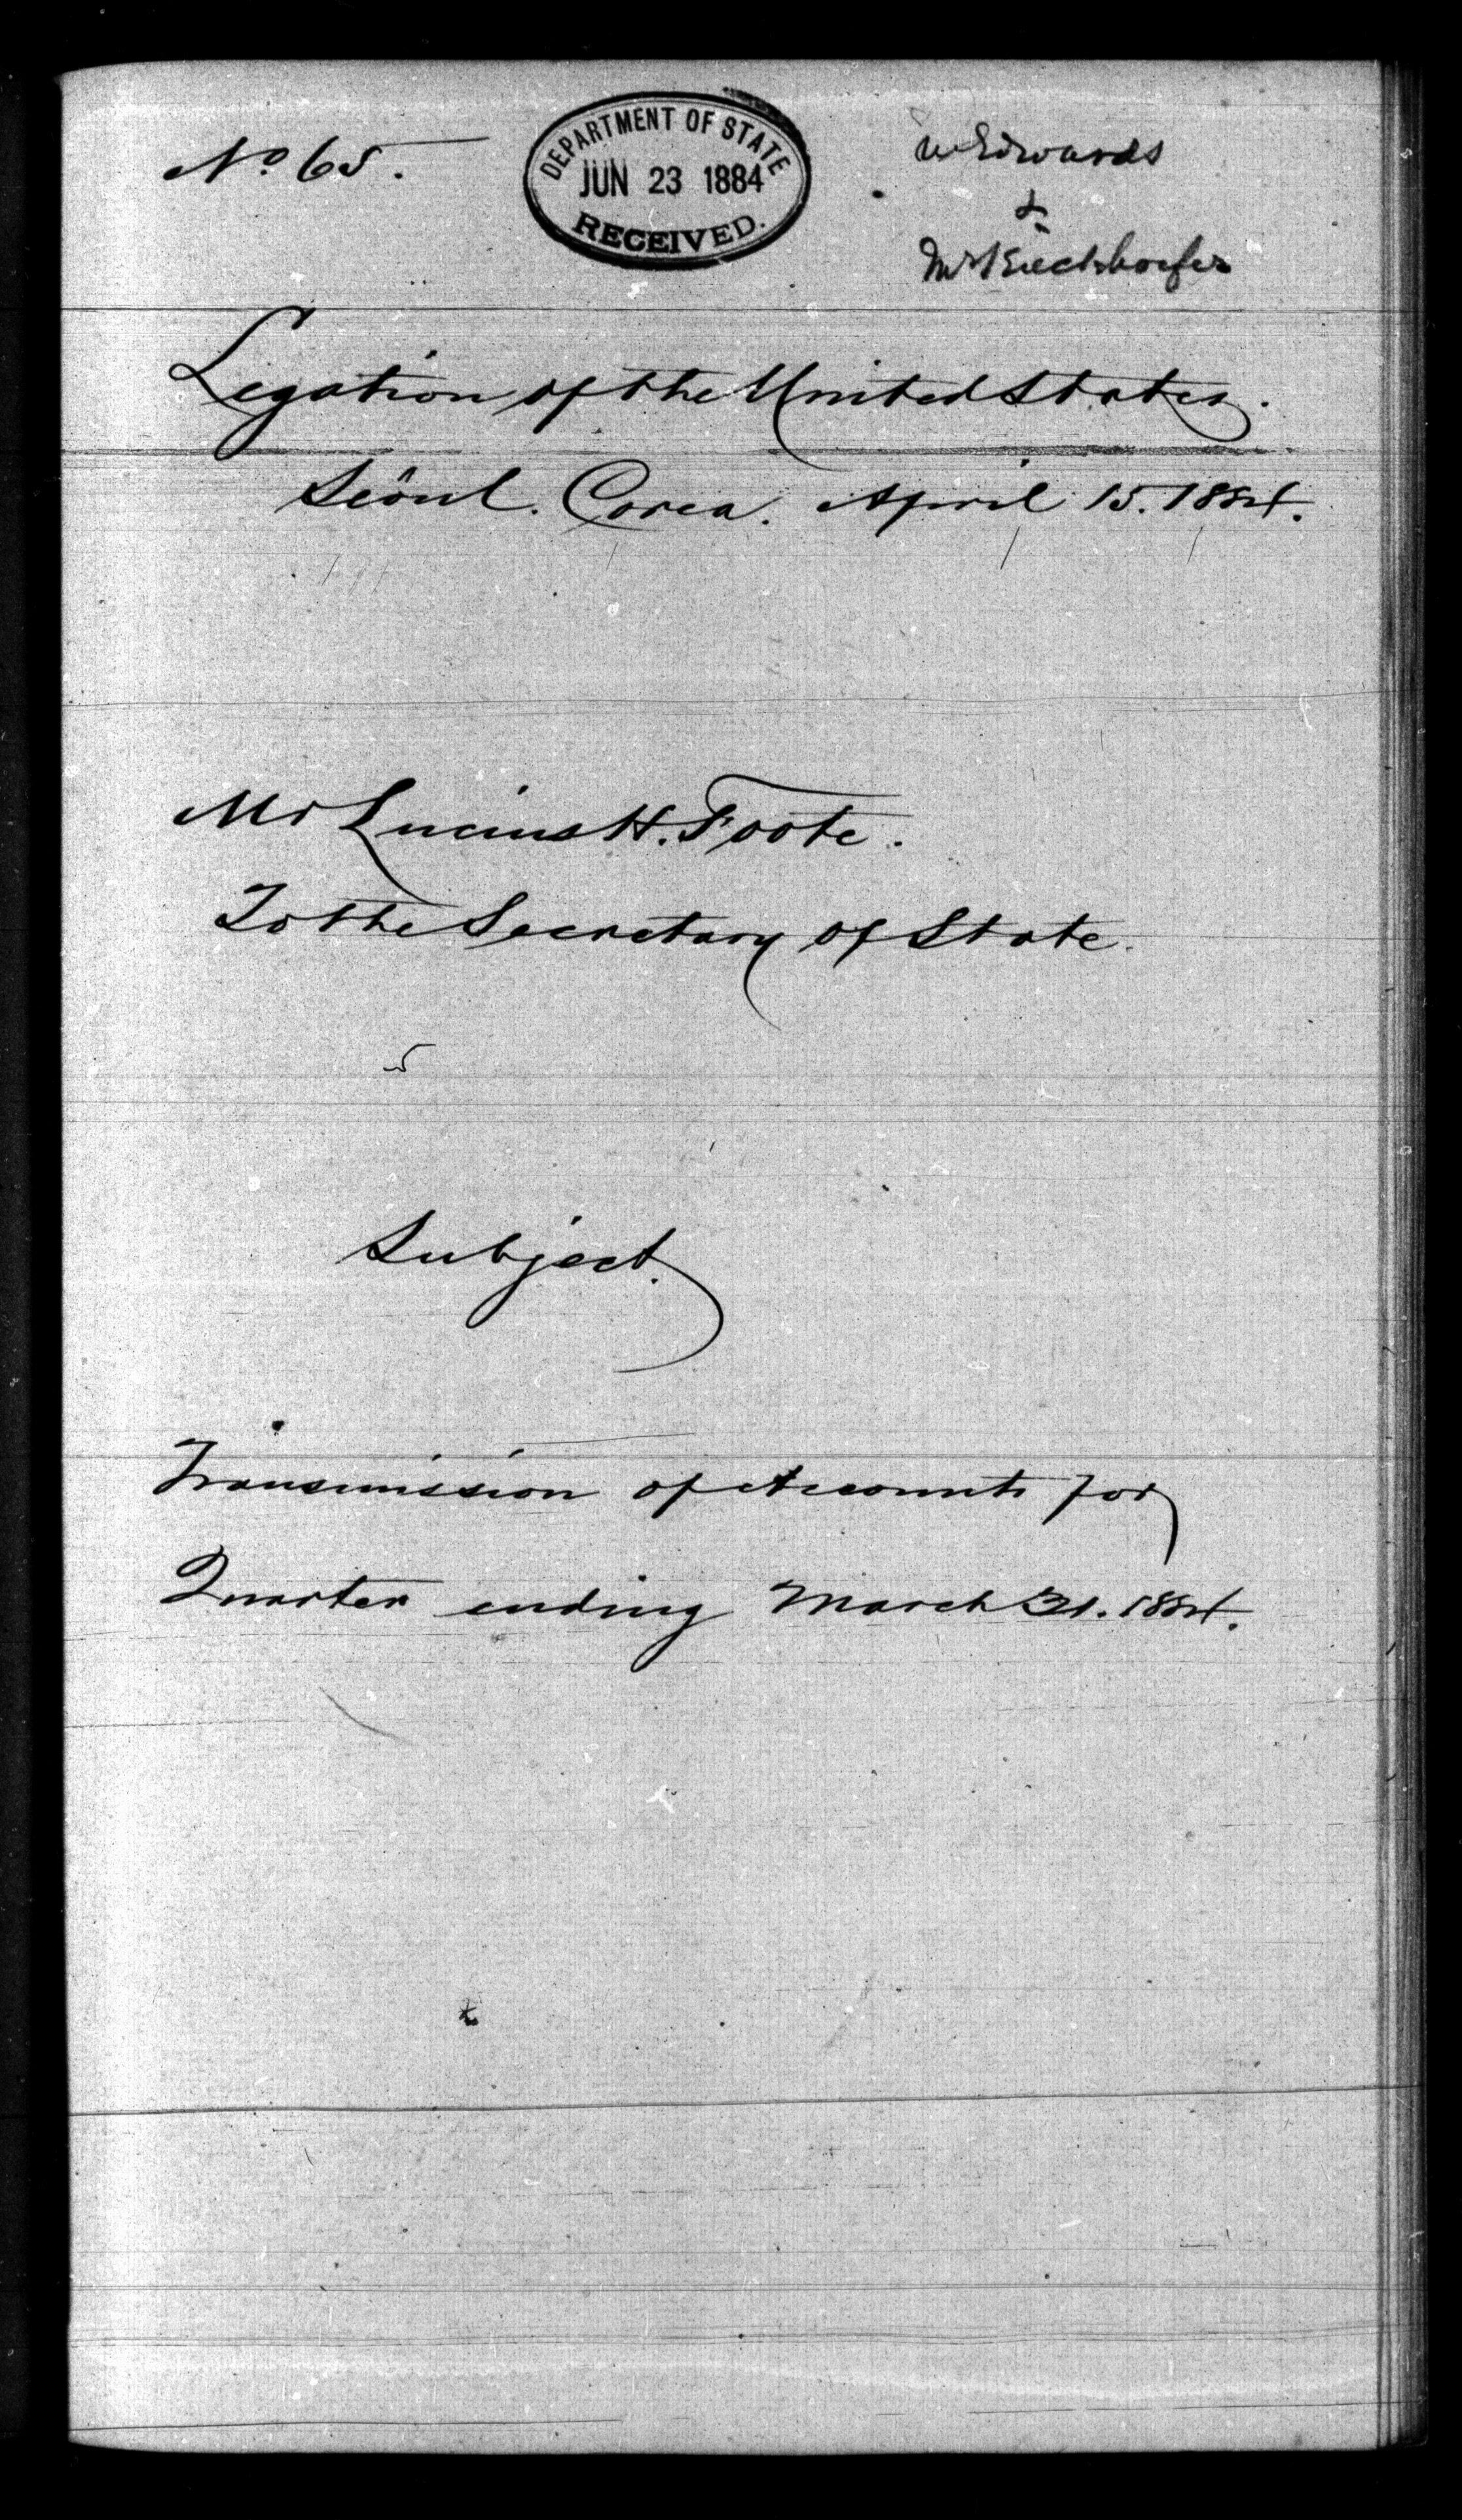 No 65.
DEPARTMENT OF STATE
JUN 23 1884
RECEIVED.
Edwards
&
Mr Kieckhoefer
Legation of the United States.
Seoul. Corea. April 15. 1884.
Mr Lucius H. Foote.
To the Secretary of State.
Subject.
Transmission of Accounts for
Quarter ending March 31. 1884.